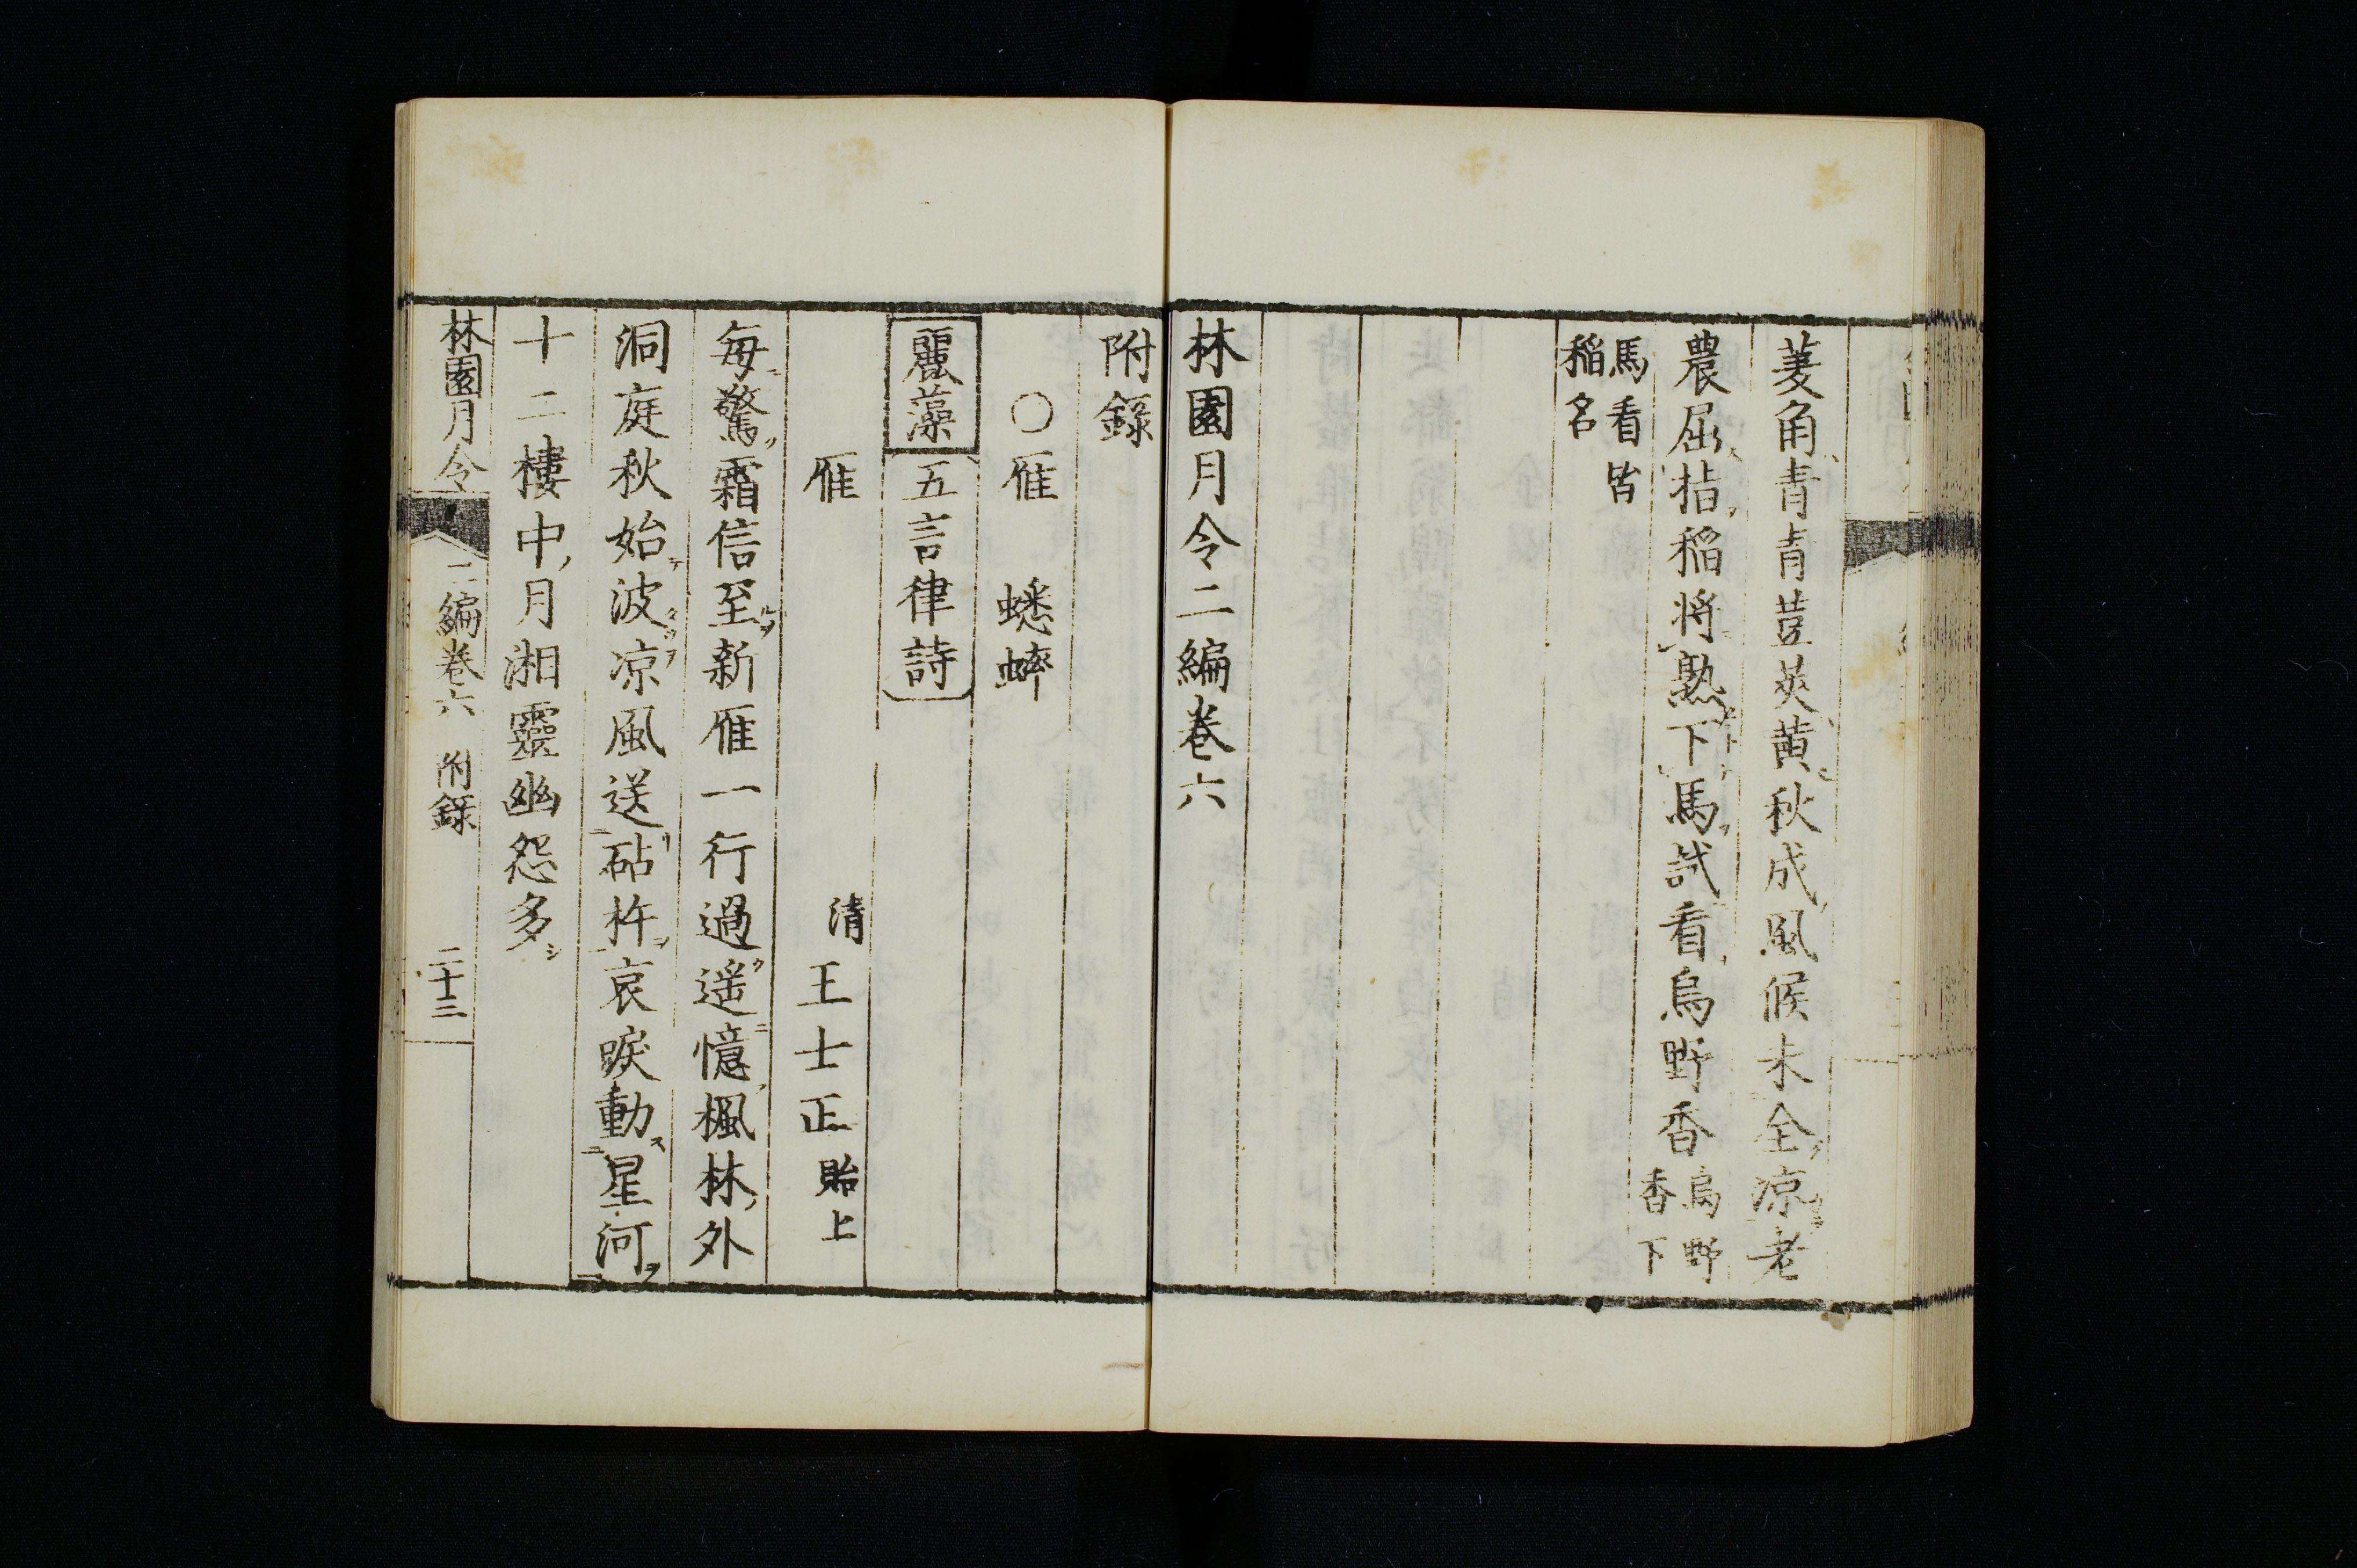 菱角青青荳莢黃秋成風候未全凉老
農屈指稲将熟下馬試看烏野香烏野
香下
馬看皆
稲名
林園月令二編巻六
附錄
○雁 蟋蟀
麗藻 五言律詩
雁 清王士正貽上
每驚霜信至新雁一行過遥憶楓林外
洞庭秋始波凉風送砧杵哀唳動星河
十二樓中月湘靈幽怨多
林園月令 二編巻六 附錄 二十三